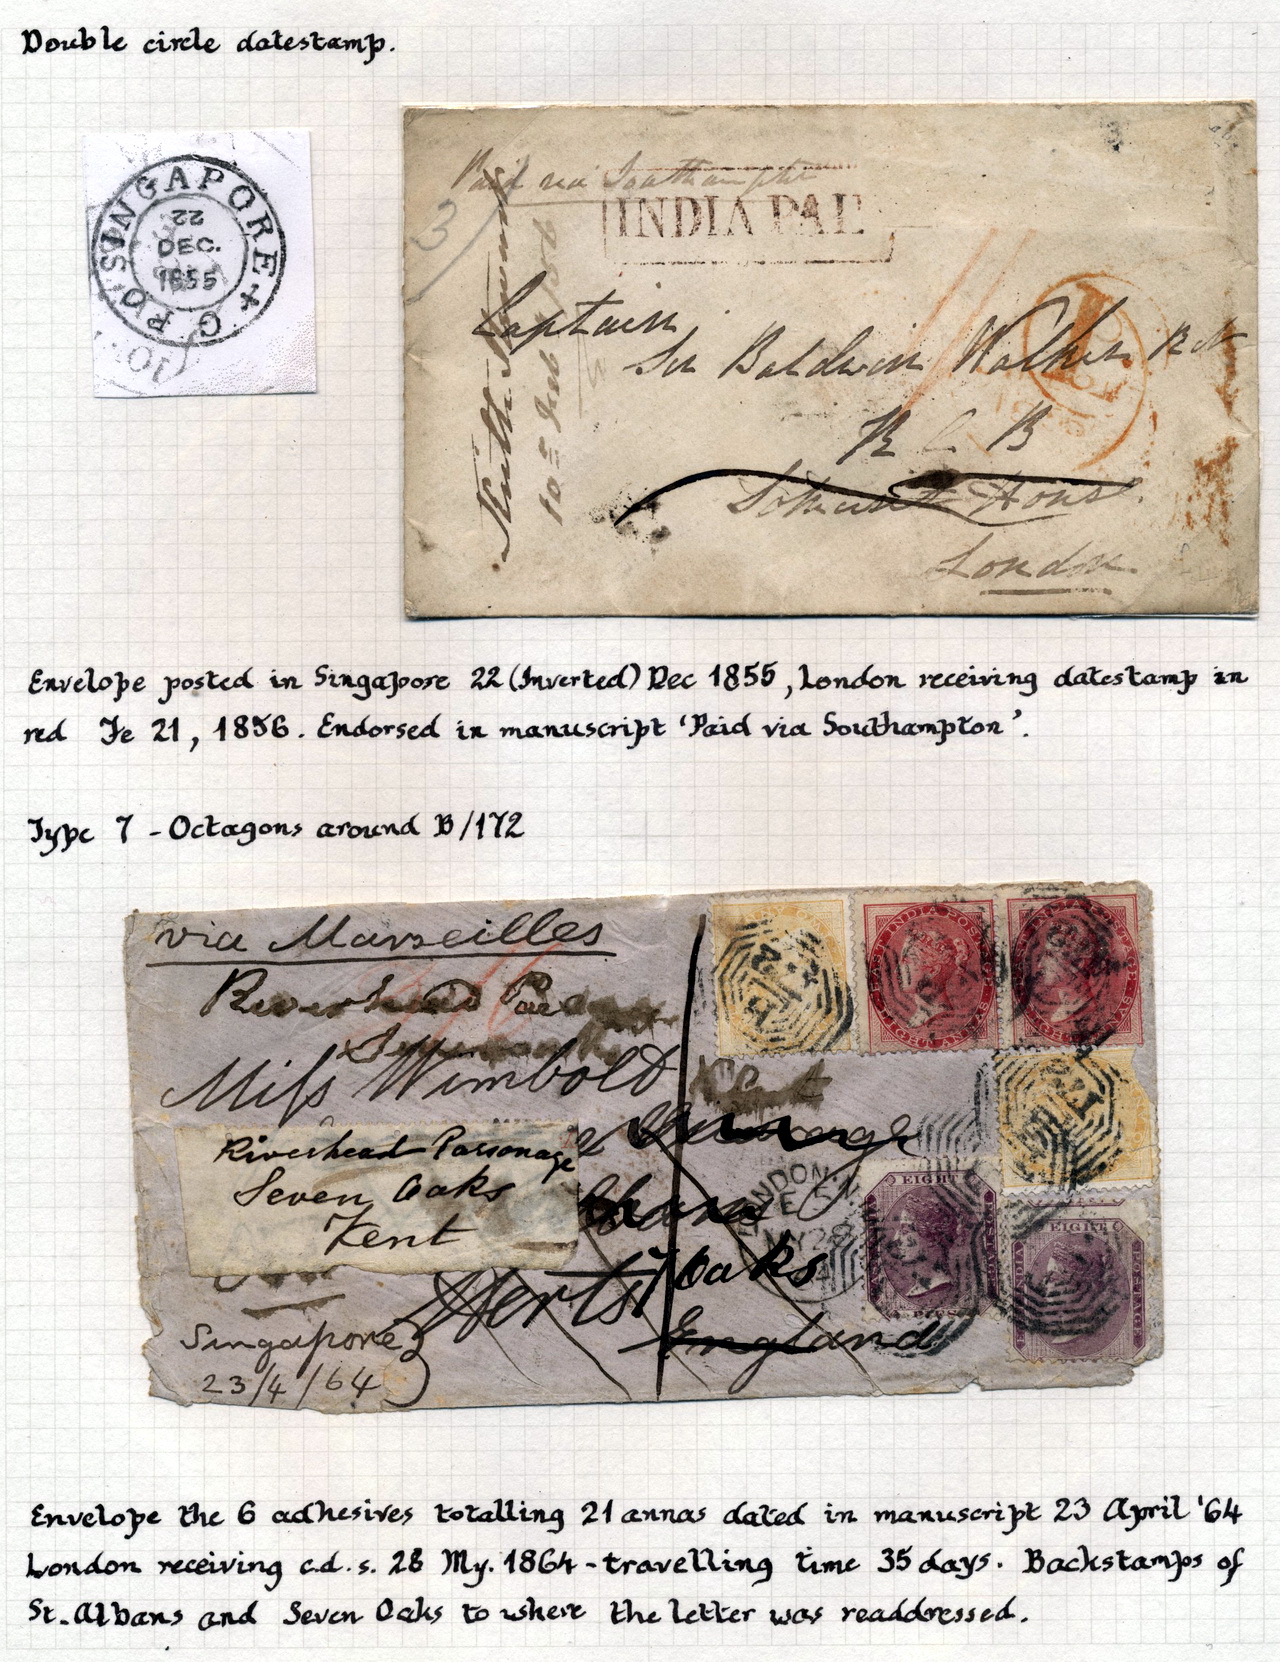 Double circle datestamp.
G.P.O. SINGAPORE
22
DEC.
1855
Paid via Southampton
3
INDIA PAI
Captain
Sir Baldwin Walker
K C B
London
Envelope posted in Singapore 22 (Inverted) Dec 1855, London receiving datestamp in
red Fe 21, 1856. Endorsed in manuscript 'Paid via Southampton'.
Type 7 - Octagons around B/172
via Marseilles
Riverhead
Miss Wimbold
Riverhead Parsonage
Seven Oaks
Kent
Herts
7 Oaks
England
LONDON
MY 28
EAST INDIA POSTAGE
EIGHT ANNAS
EIGHT
EIGHT
Singapore
23/4/64
Envelope the 6 adhesives totalling 21 annas dated in manuscript 23 April '64
London receiving c.d.s. 28 My. 1864 - travelling time 35 days. Backstamps of
St. Albans and Seven Oaks to where the letter was readdressed.